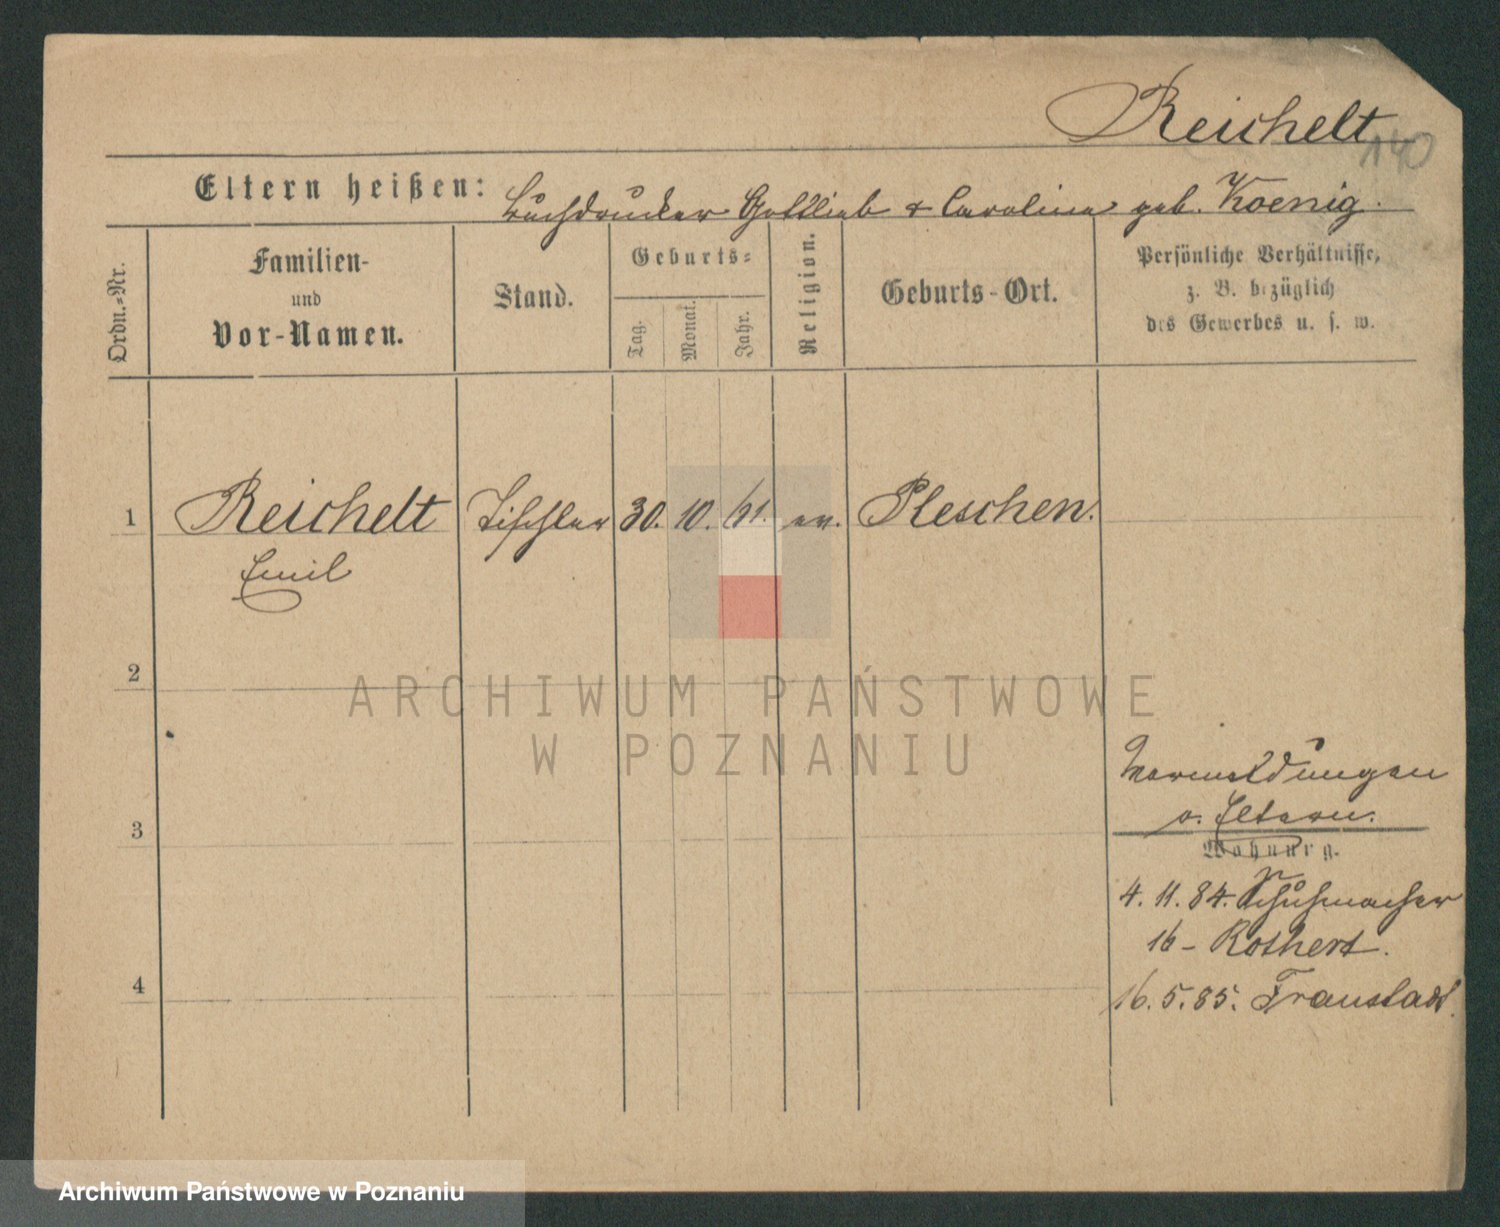 Reichelt
140
Eltern heißen: Buchdrucker Gottlieb & Caroline geb. Koenig.
Ordn.-Nr.
Familien-
und
Vor-Namen.
Stand.
Geburts-
Tag.
Monat.
Jahr.
Religion.
Geburts-Ort.
Persönliche Verhältnisse,
z. B. bezüglich
des Gewerbes u. s. w.
1 Reichelt Tischler 30. 10. 61. ev. Pleschen.
Emil
2
ARCHIWUM PAŃSTWOWE
W POZNANIU
3
Eltern.
Wohnung.
4. 11. 84. Schuhmacher
16 - Rothert.
4
16. 5. 85. Fraustadt.
Archiwum Państwowe w Poznaniu